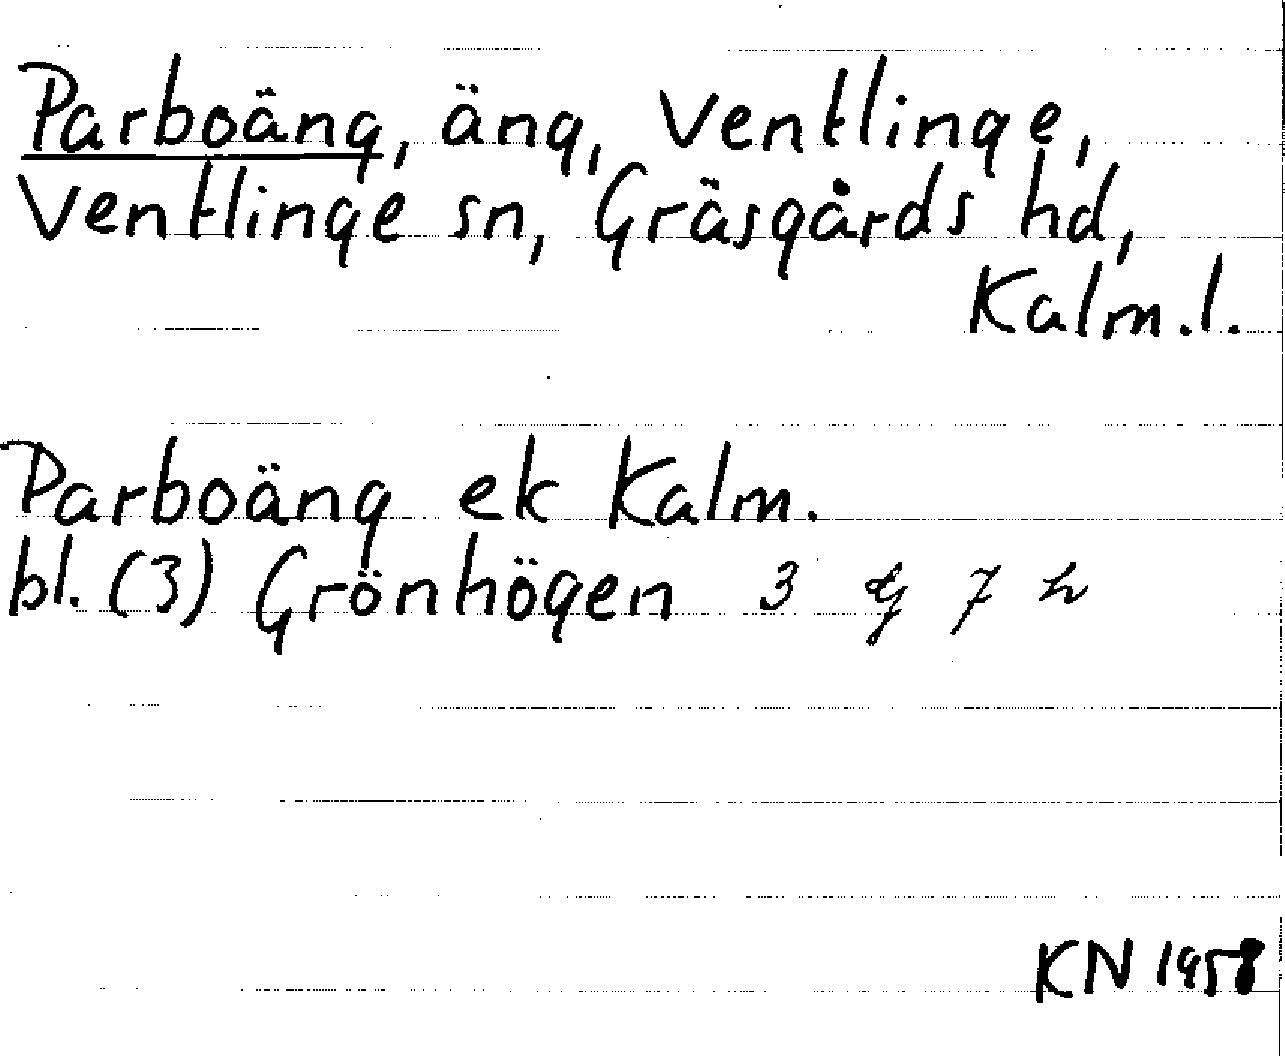 Parboäng, äng, Ventlinge,
Ventlinge sn, Gräsgårds hd,
Kalm.l.
Parboäng ek Kalm.
bl. (3) Grönhögen 3 g 7 h
KN 1958